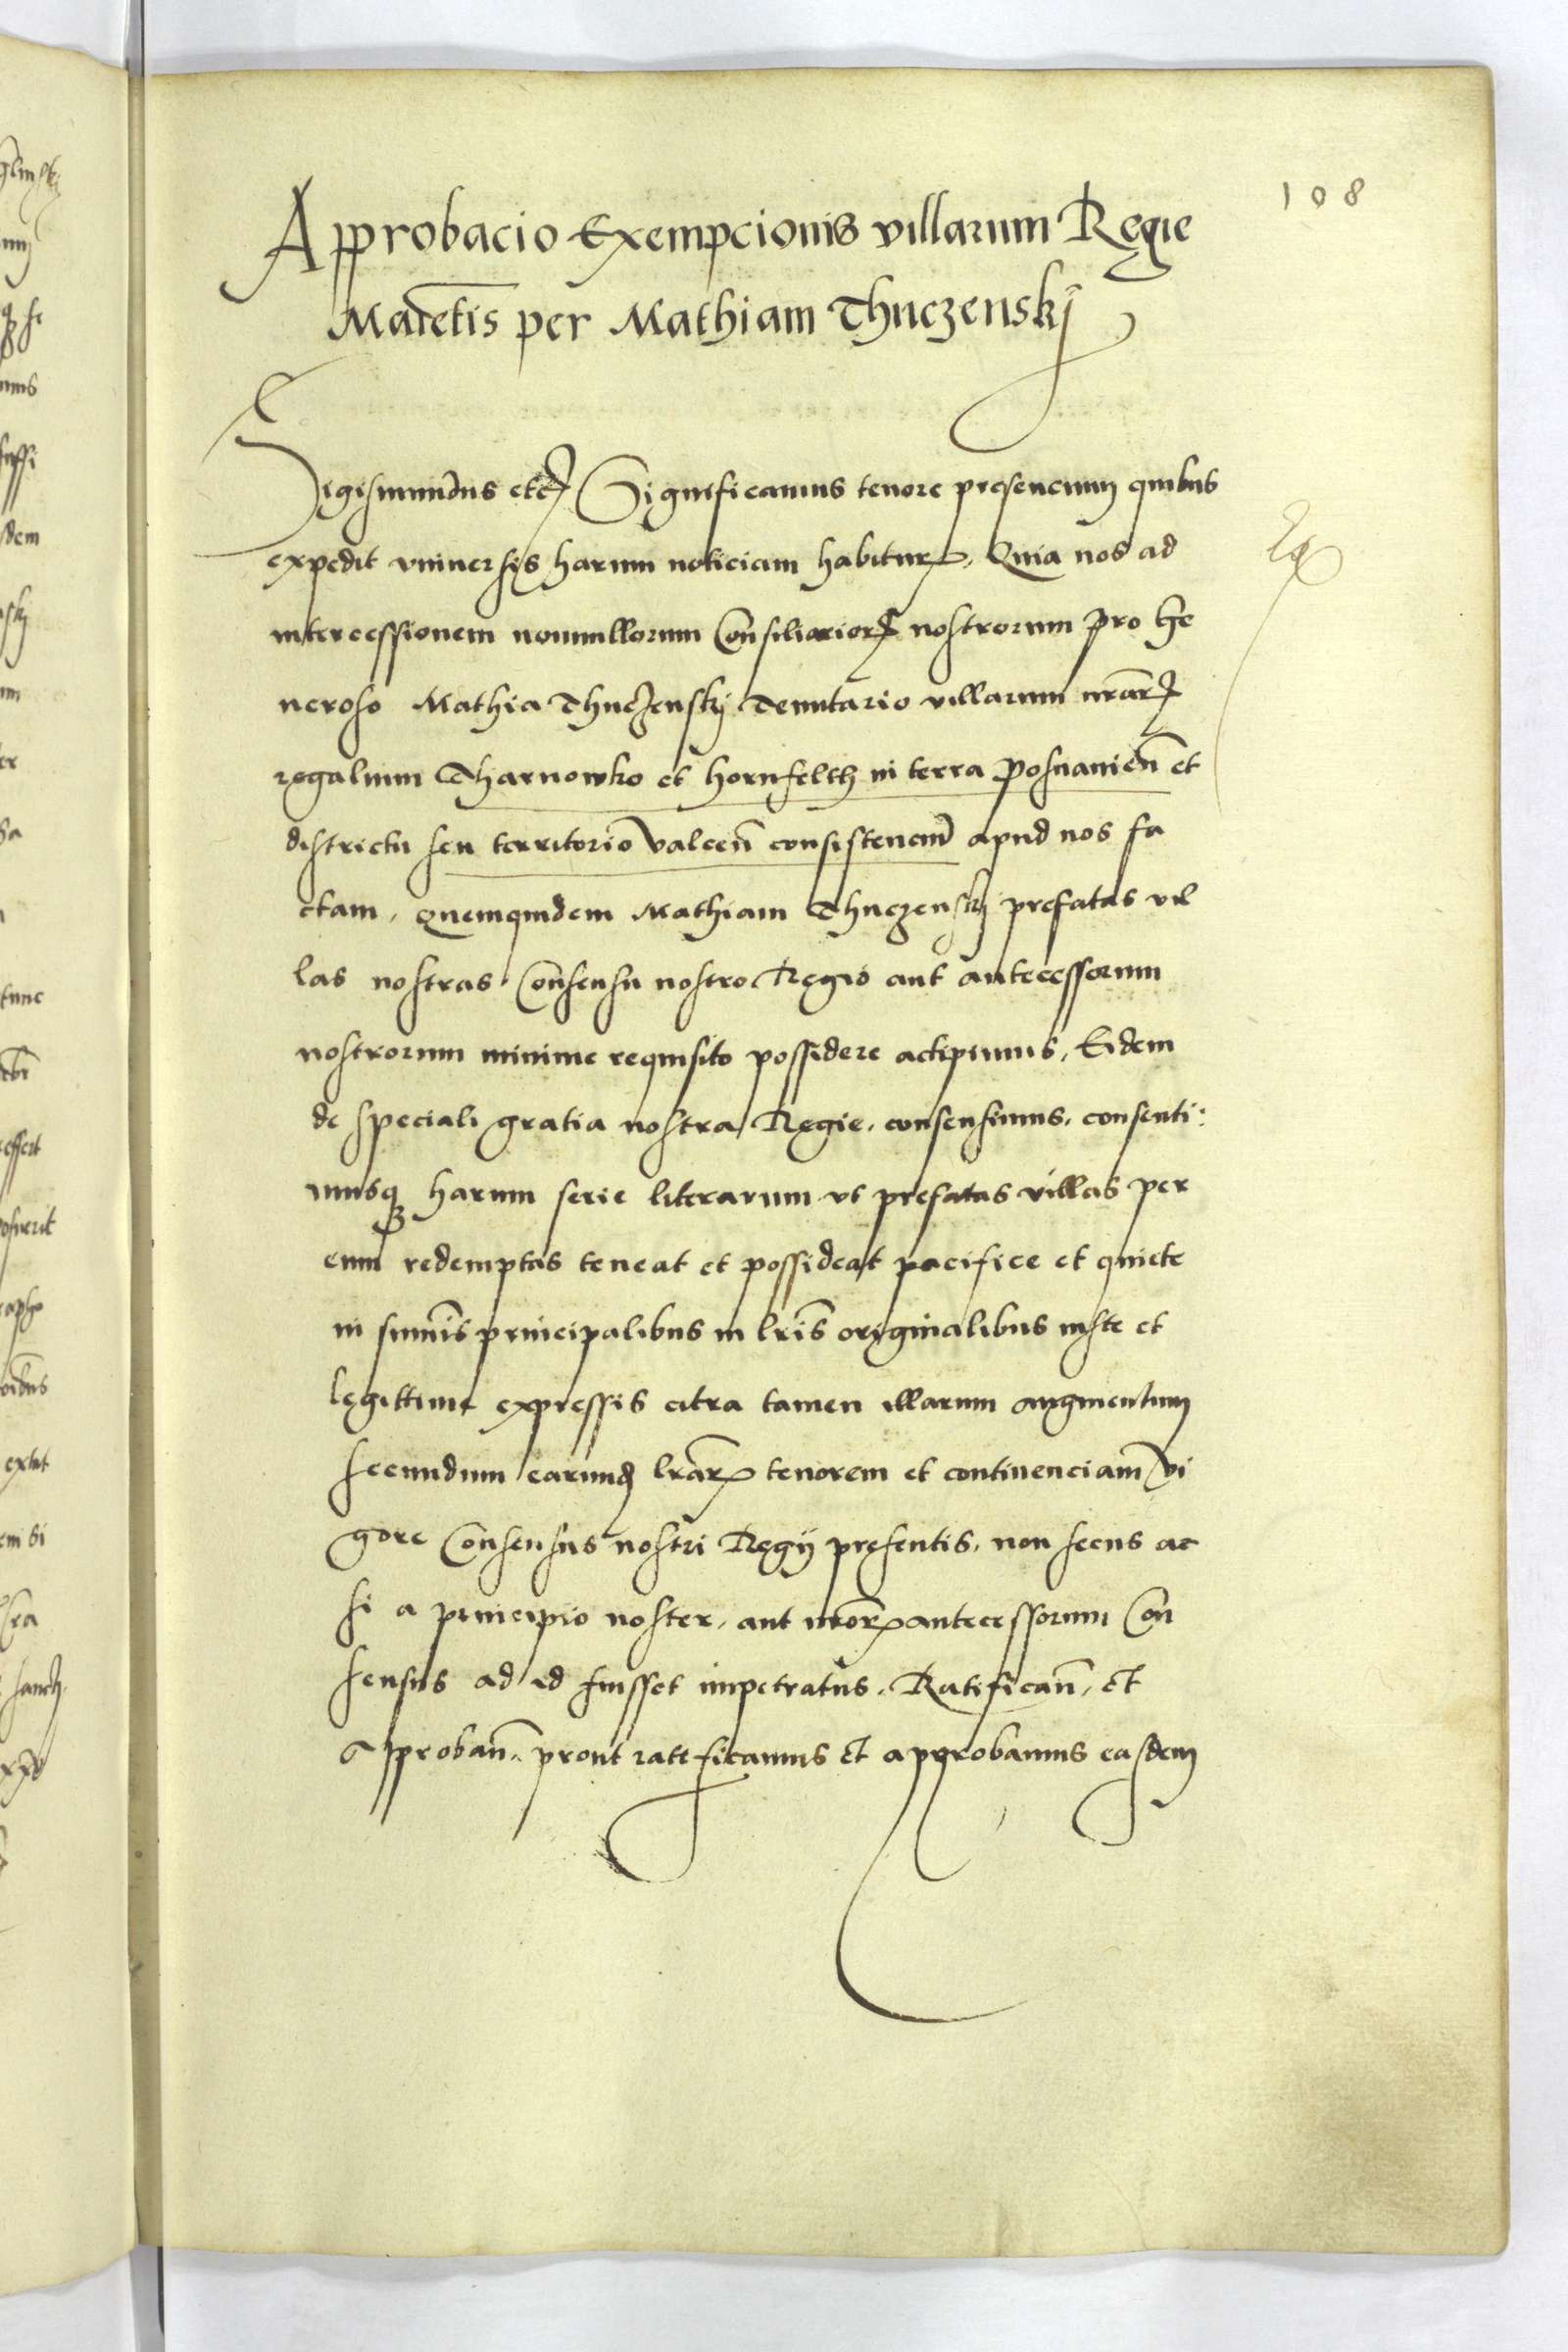 108
Approbacio Exempcionis villarum Regie
Maietis per Mathiam Thuczenskj
Sigismundus etc Significamus tenore presencium quibus
expedit vniuersis harum noticiam habitur. Quia nos ad
intercessionem nonnullorum Consiliarior nostrorum pro Ge
neroso Mathia Thuczenskj Tenutario villarum nrar
regalium Tharnowko et Hornfelth in terra Posnanien et
districtu seu territorio Valcen consistencium apud nos fa
ctam, quemquidem Mathiam Thuczenskj prefatas vil
las nostras Consensu nostro Regio aut antecessorum
nostrorum minime requisito possidere accipimus, Eidem
de speciali gratia nostra Regie. consensimus. consenti:
musq harum serie literarum vt prefatas villas per
eum redemptas teneat et possideat pacifice et quiete
in sumis principalibus in lris originalibus iuste et
legittime expressis citra tamen illarum augmentum
secundum earund lrar tenorem et continenciam Vi
gore Consensus nostri Regij presentis, non secus ac
si a principio noster, aut nror antecessorum Con
sensus ad id fuisset impetratus. Ratifican, et
approban. prout ratificamus et approbamus easdem